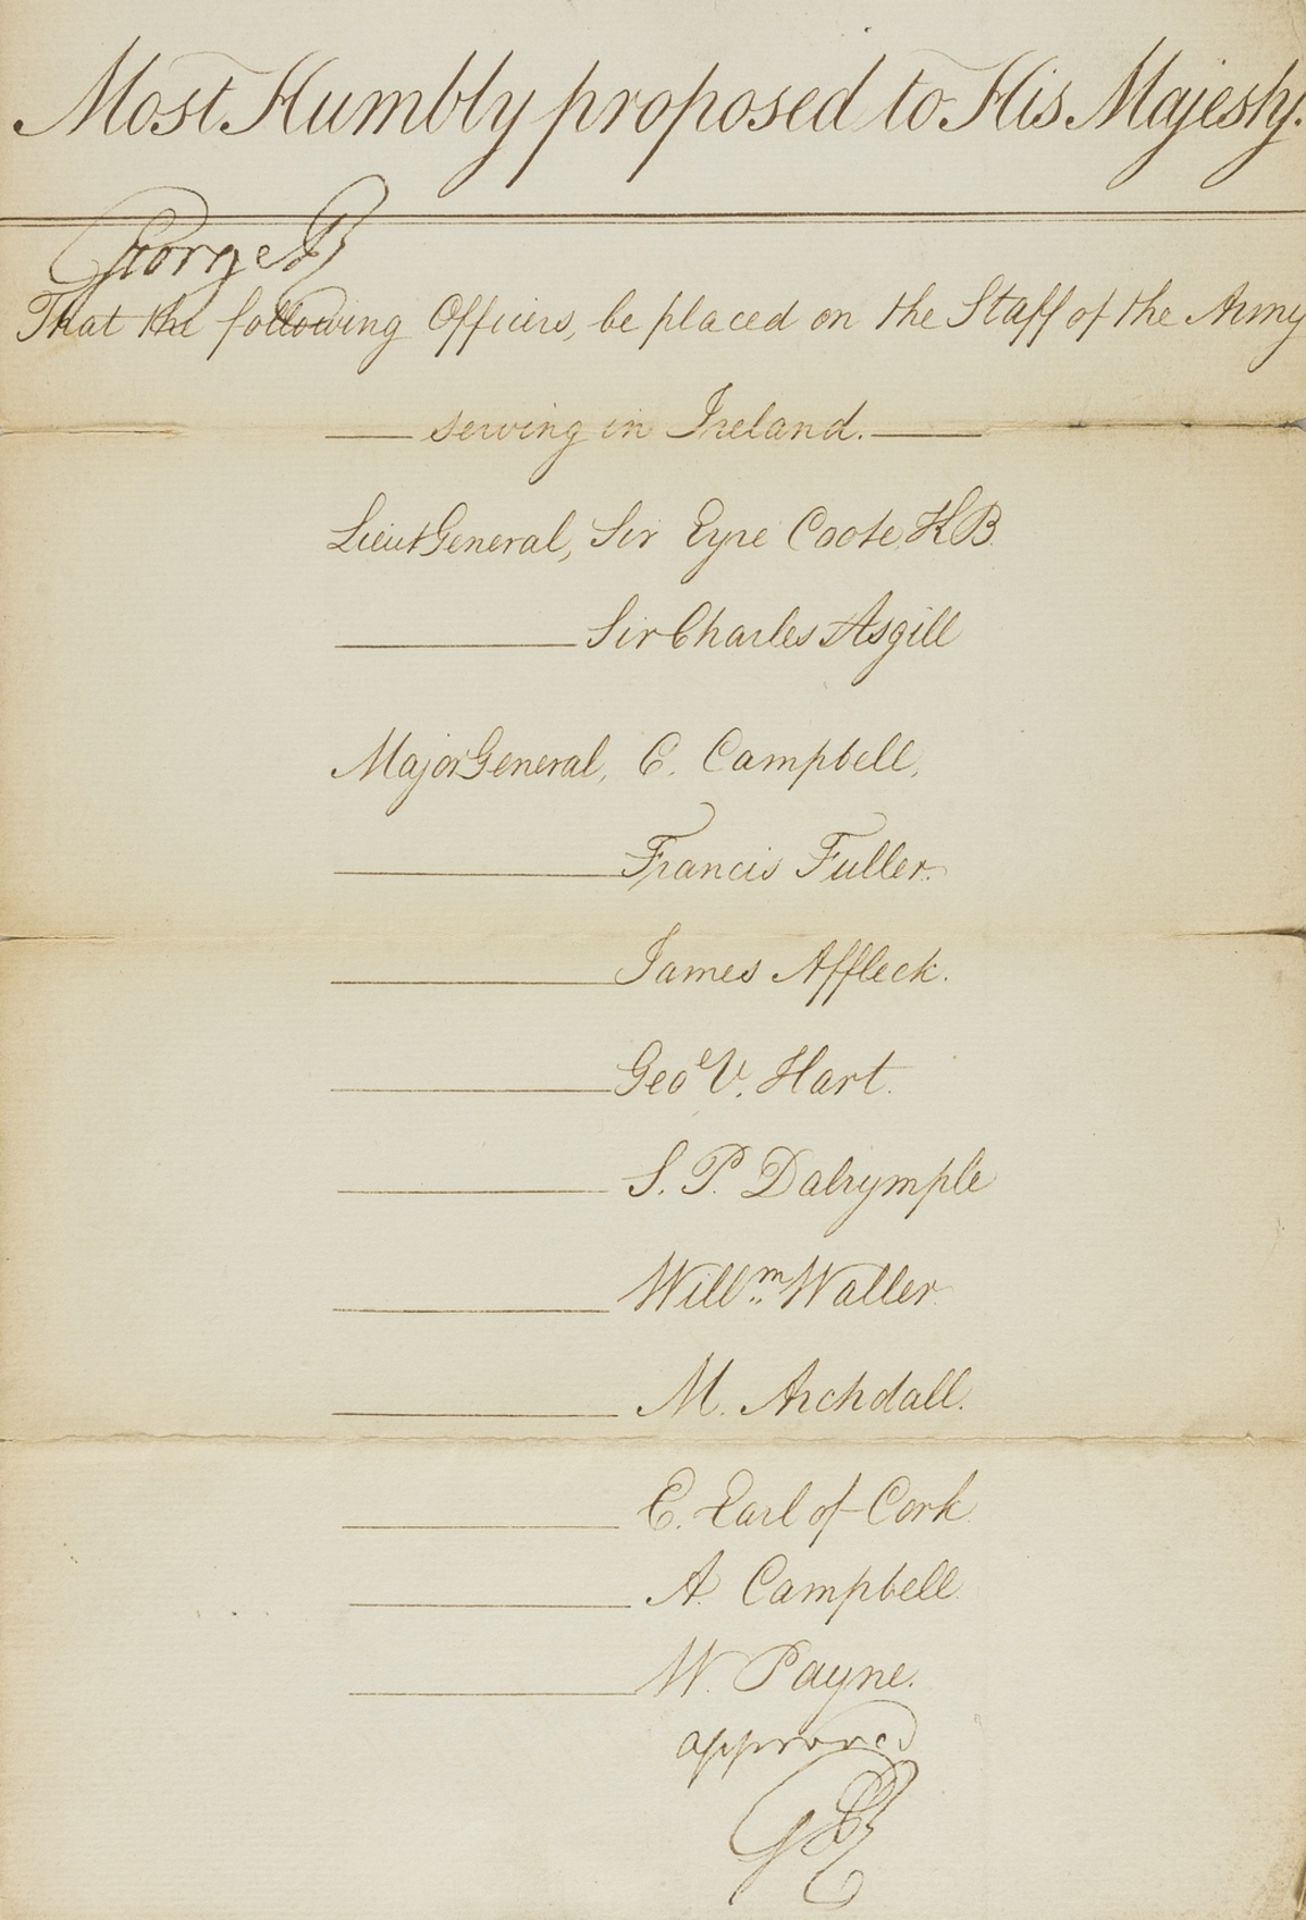 Most Humbly proposed to His Majesty.
George R
That the following Officers, be placed on the Staff of the Army
serving in Ireland.
Lieut General, Sir Eyre Coote. K B.
Sir Charles Asgill
Major General, C. Campbell,
Francis Fuller.
James Affleck.
Geoe V. Hart.
S. P. Dalrymple
Willm Waller.
M. Archdall.
E. Earl of Cork
A. Campbell
W. Payne.
approved
G R